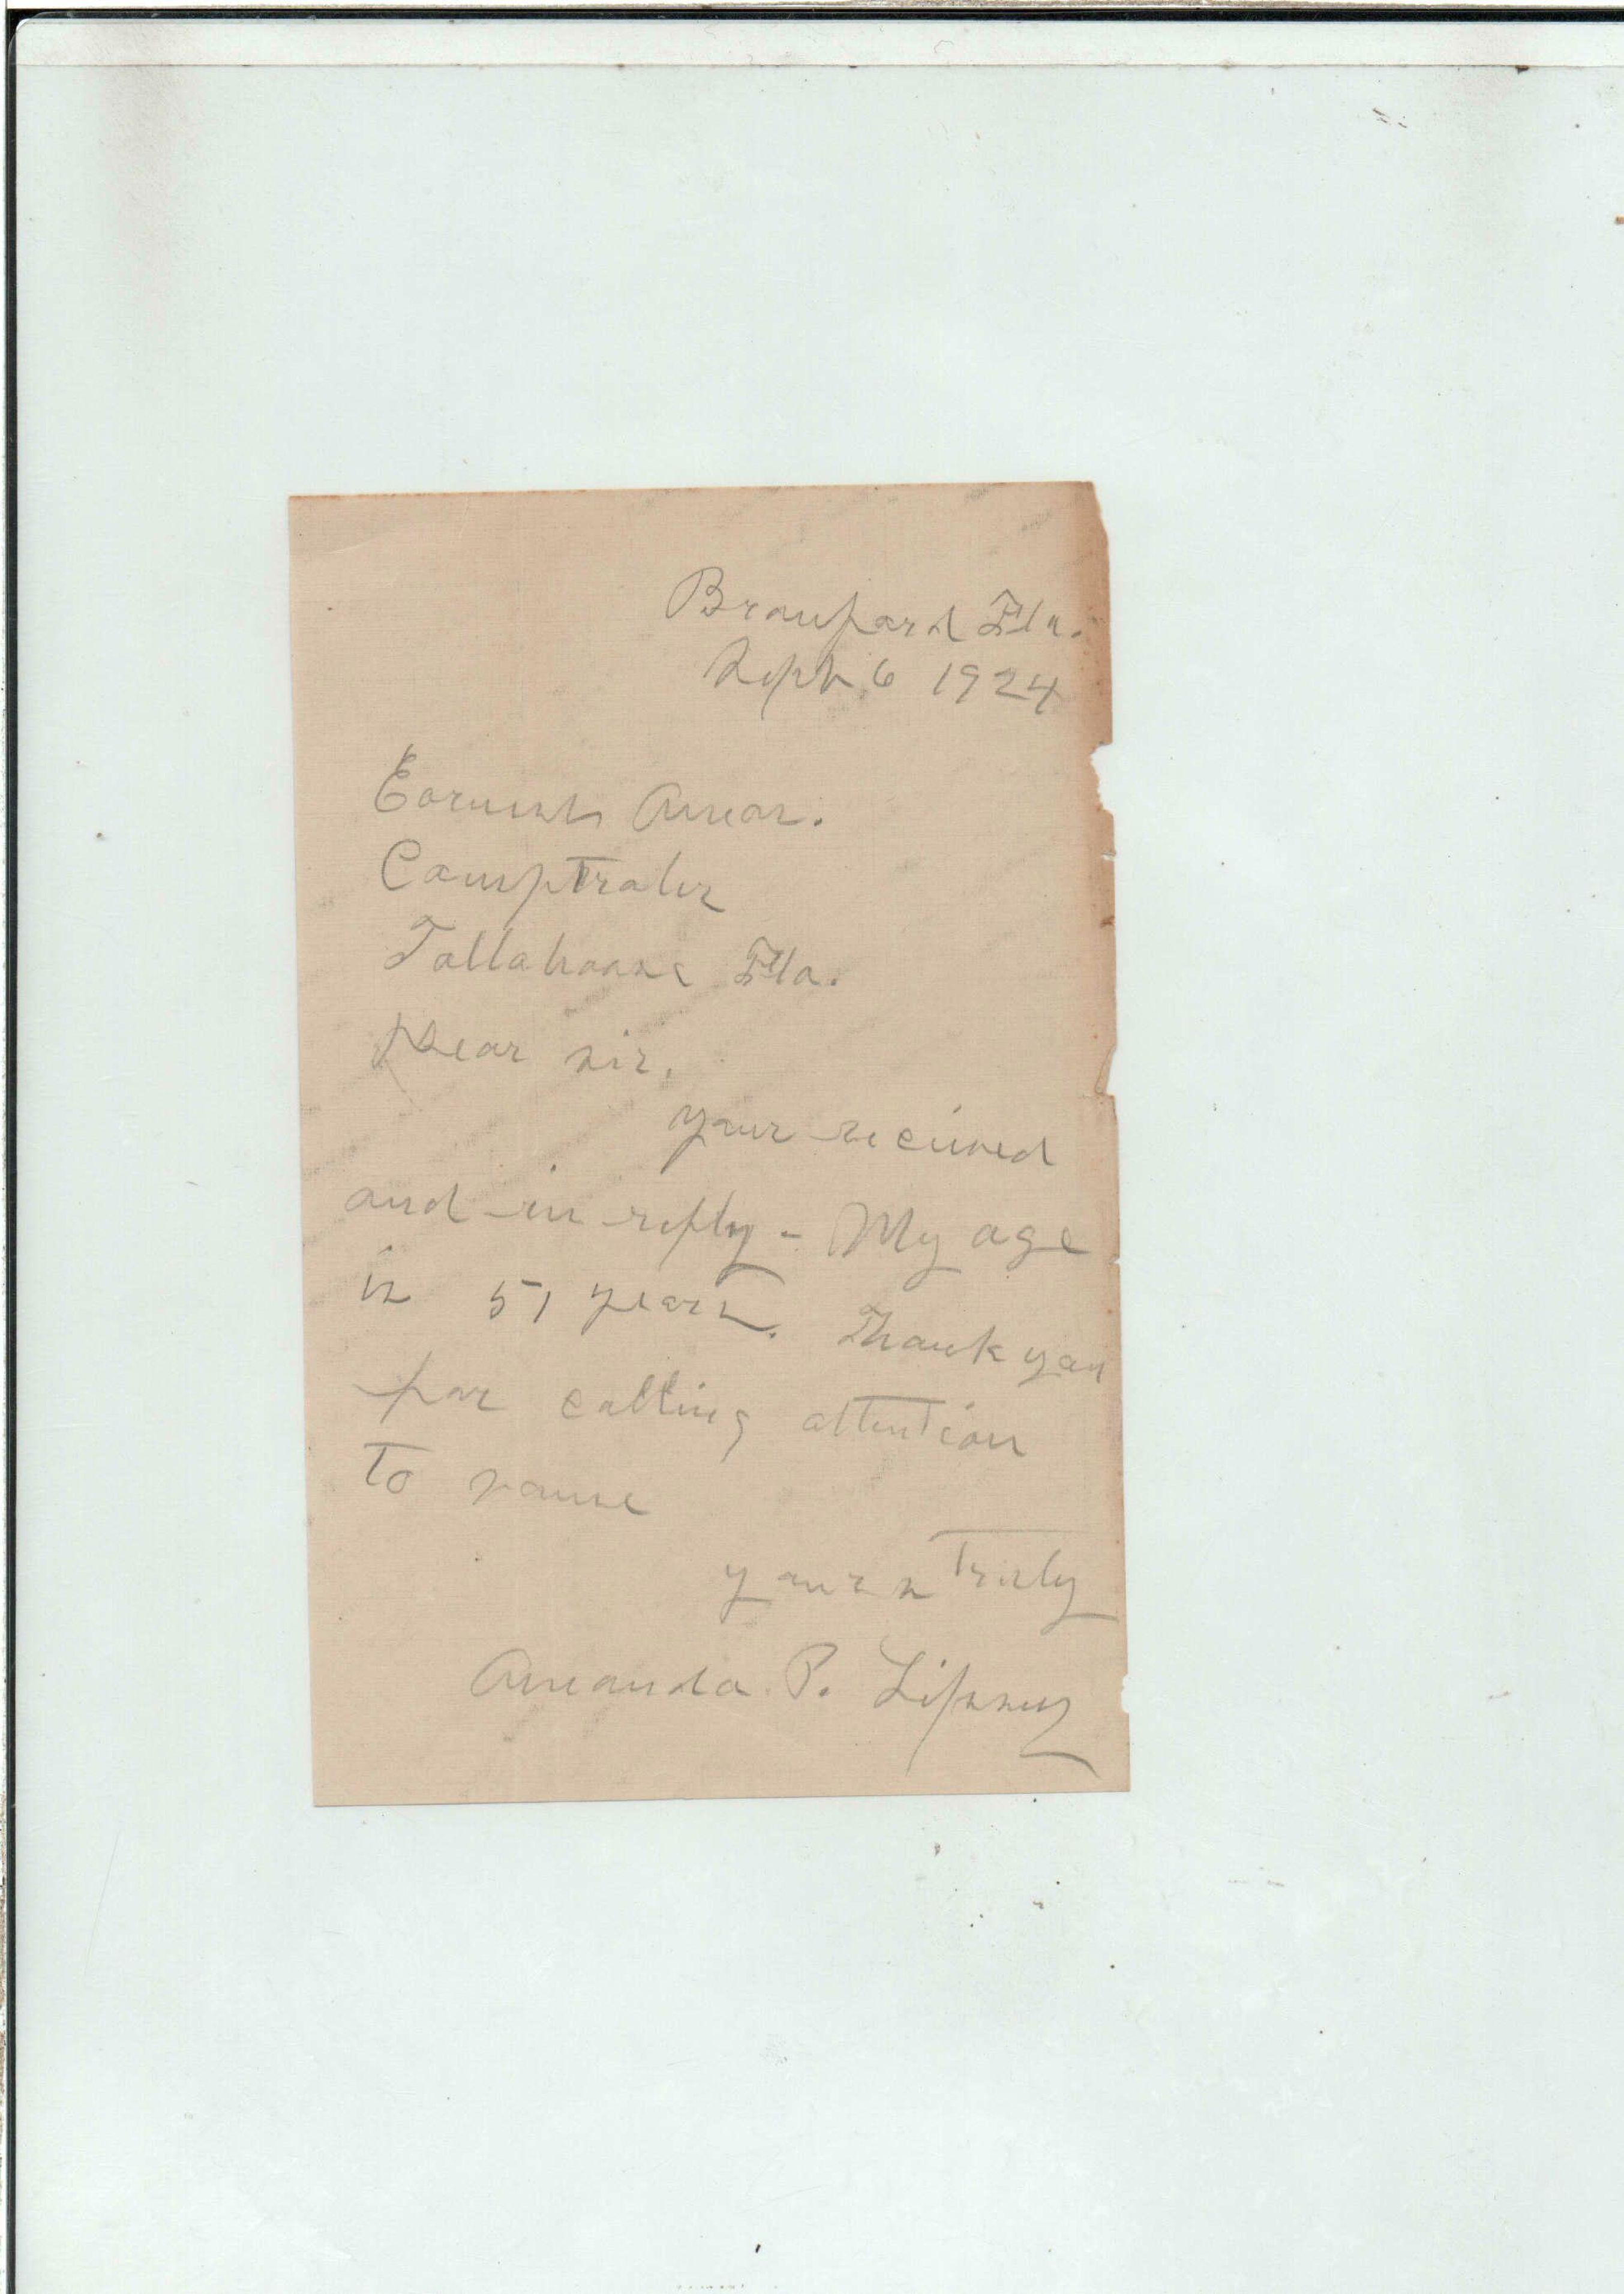 Branford Fla.
Sept 6 1924
Earnest Amos.
Comptroler
Tallahasse Fla.
Dear sir.
your recieved
and in reply - My age
is 51 years. Thank you
for calling attention
to same
yours Truly
Amanda P.